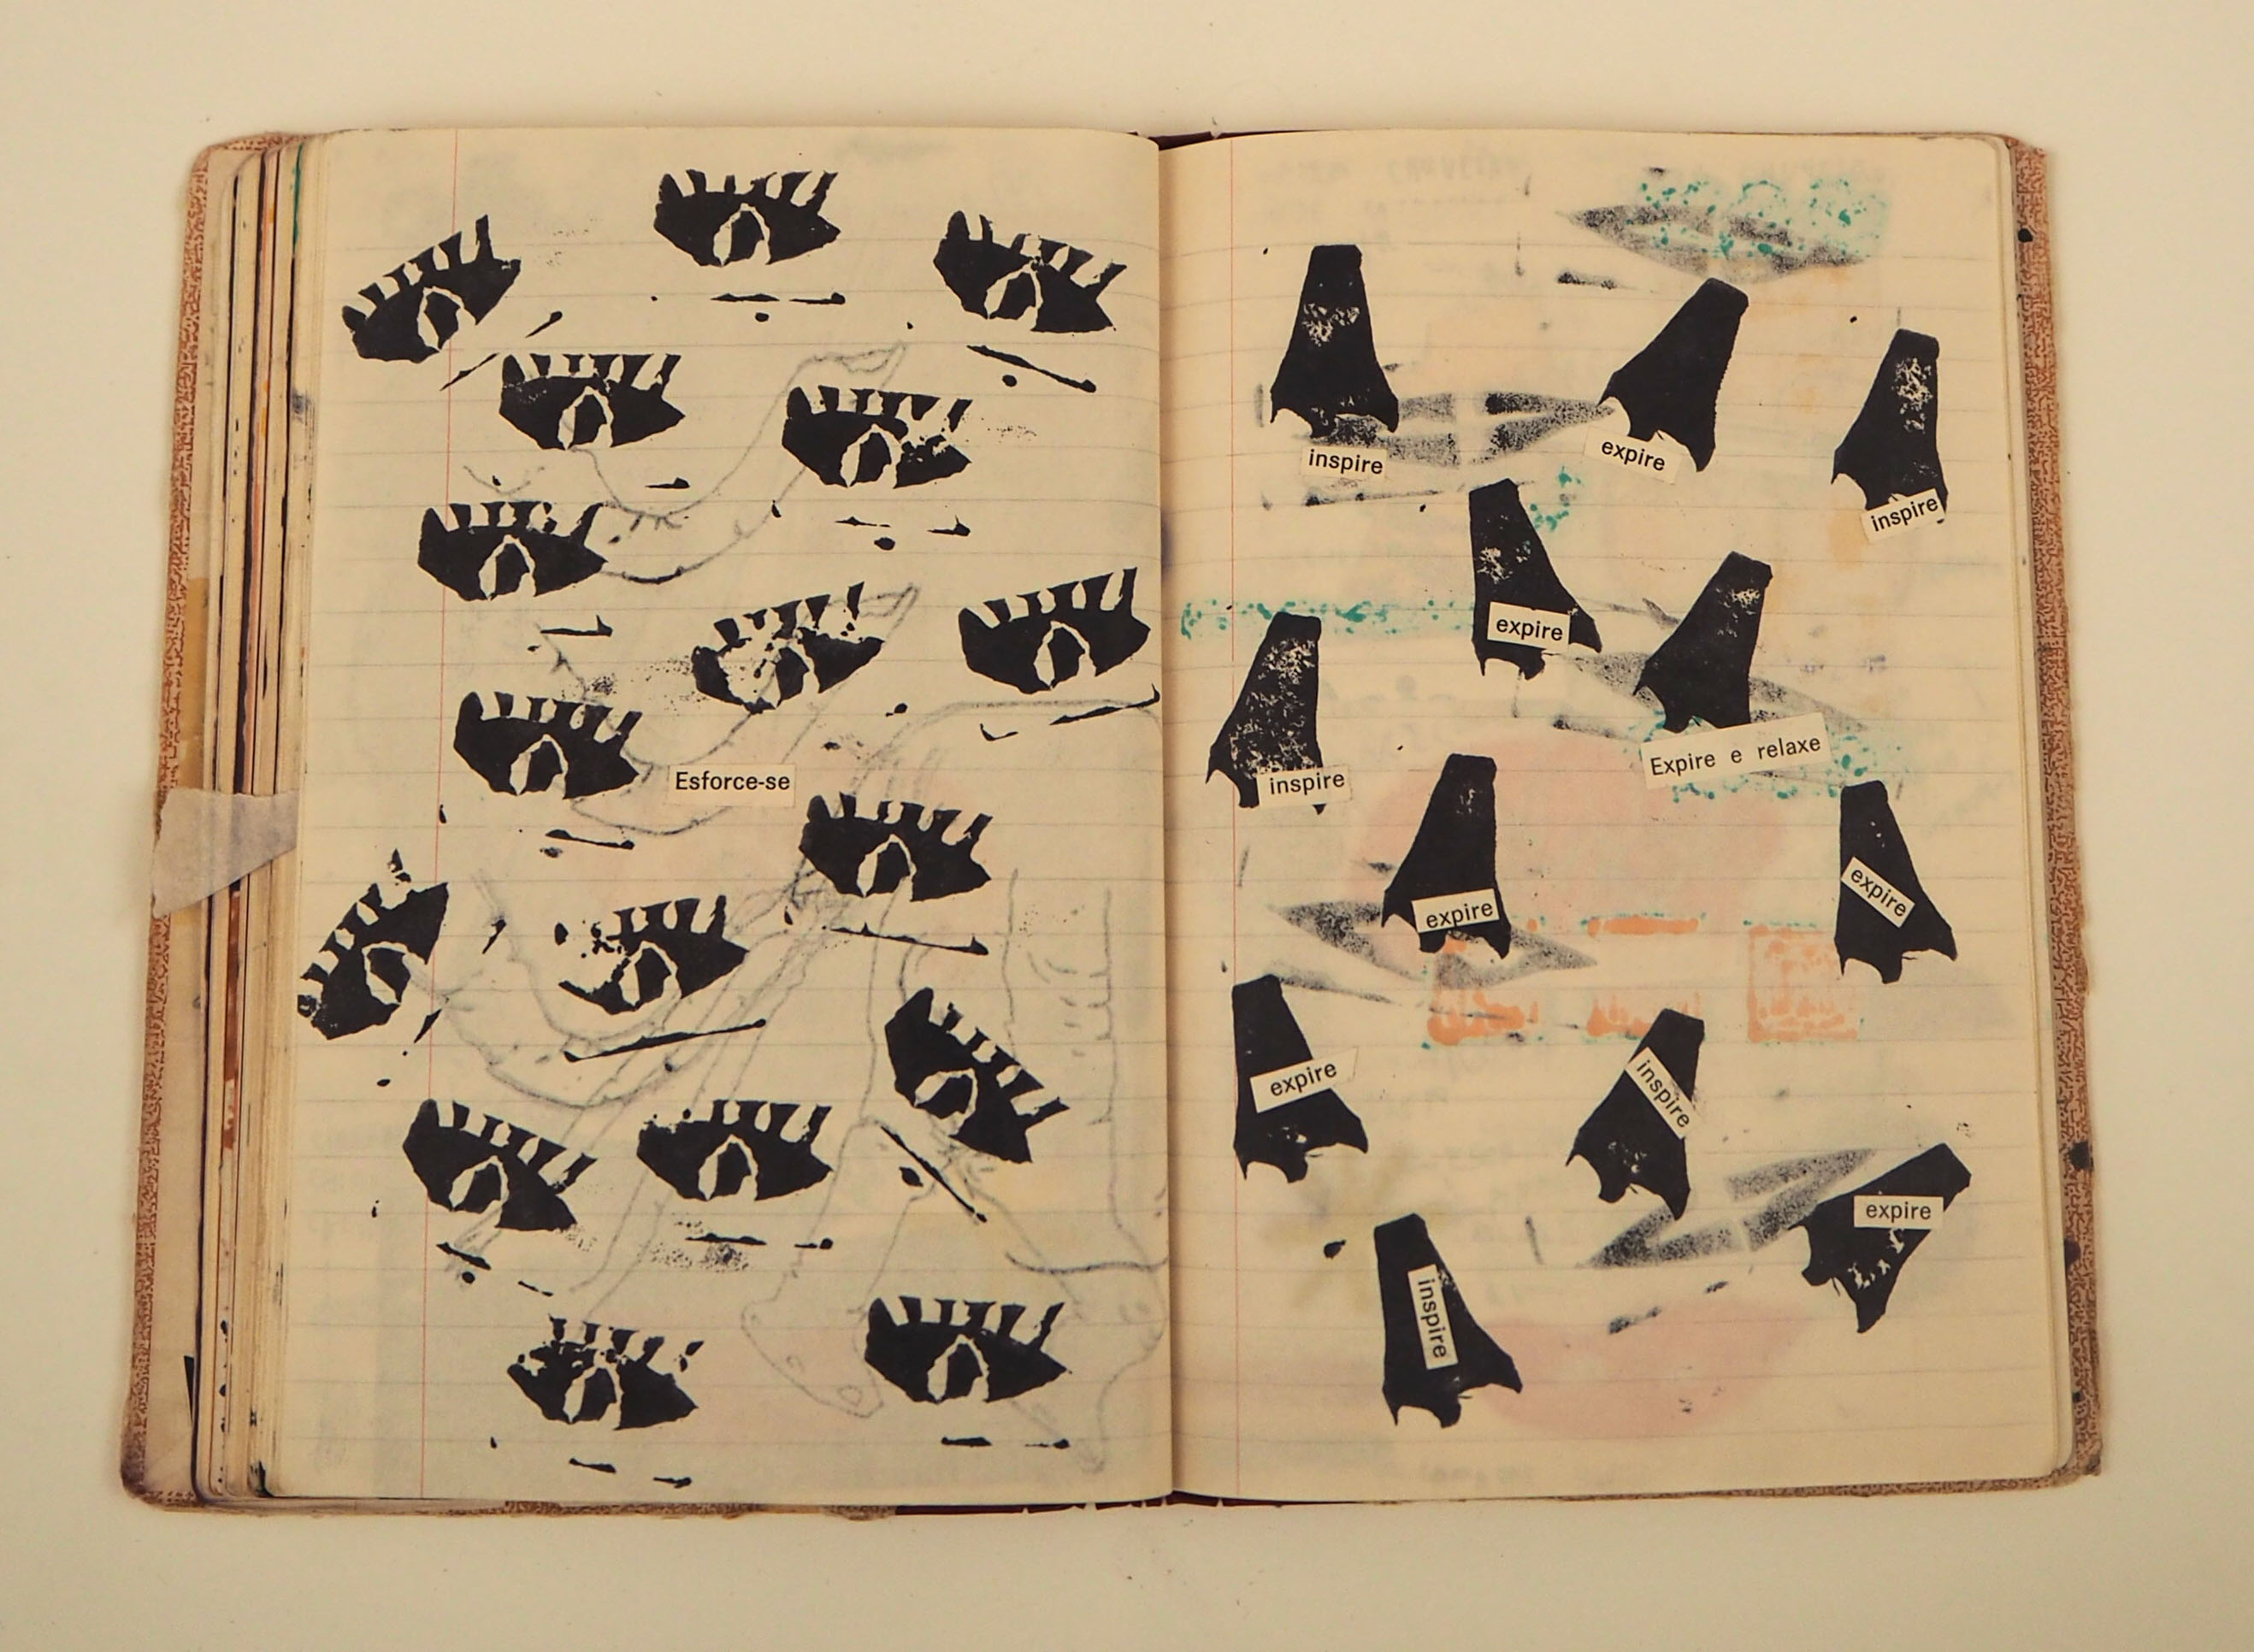 Esforce-se
inspire
expire
inspire
expire
Expire e relaxe
inspire
expire
expire
expire
inspire
expire
inspire